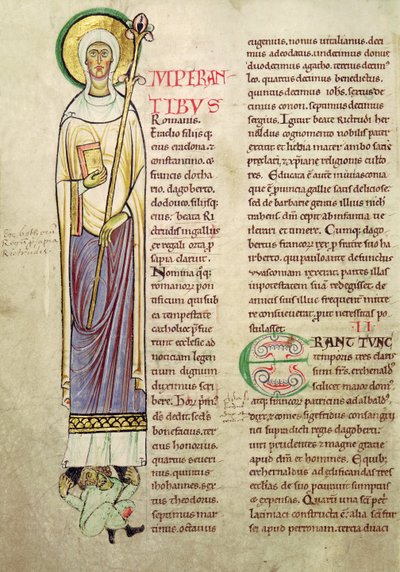 IMPERAN
TIBVS
Romanis.
Eradio filiisq;
eius eracleona. &
constantino. ce
francis clotha
rio. dagoberto.
hlodouo. filiisq;
eius: beata Ri
ctrudis in galliis
ex regali orta p
sapia claruit.
Nomina q̄q;
romanor pon
tificum qui sub
ea tempestate
catholice p̄fue
runt ecclesię ad
noticiam legen
tium dignum
duximus scri
bere. Hor prim;
de dedit. secds
bonefacius. ter
cius honorius.
quartus seueri
nus. quintus
iohannes. sex
tus theodorus.
septimus mar
tinus. octauus
eugenius, nonus uitalianus. deci
mus adeodatus. undecimus donus
duodecimus agatho. tercius decim;
leo. quartus decimus benedictus.
quintus decimus iohs. sextus de
cimus conon. septimus decimus
sergius. Igitur beate Rictrudi her
noldus cognomento nobilis pater
extitit. et lichia mater. ambo satis
preclari. & xp̄iane religionis culto
res. Educata ē autē in uuasconia
que ē puincia gallie satis deliciose:
sed de barbarie gentis illius nichil
trahens. dm̄ cepit ab infantia ue
nerari et timere. Cumq; dagob
bertus francor rex. p fratre suo ha
riberto. qui paulo ante defunctus
uuasconiam rexerat. partes illas
in potestatem suā redegisset. de
amicis suis illuc frequentē mitte
re consueuerat. put necessitas po
stulasset.
II
ERANT TVNC
temporis tres claris
simi frs. erchenald;
scilicet maior dom;
atq; francor patricius. adalbald;
dux. & comes sigefridus. consangui
nei supradicti regis dagoberti.
uiri prudentes & magne gratie
apud dm̄ et homines. E quib;
erchenaldus ad edificandas tres
ecclesias de suo peculiari sumptus
& expensas. Quarū una sc̄i petri
latiniaci constructa ē: alia sc̄i fur
sei apud peronam. tercia duaci